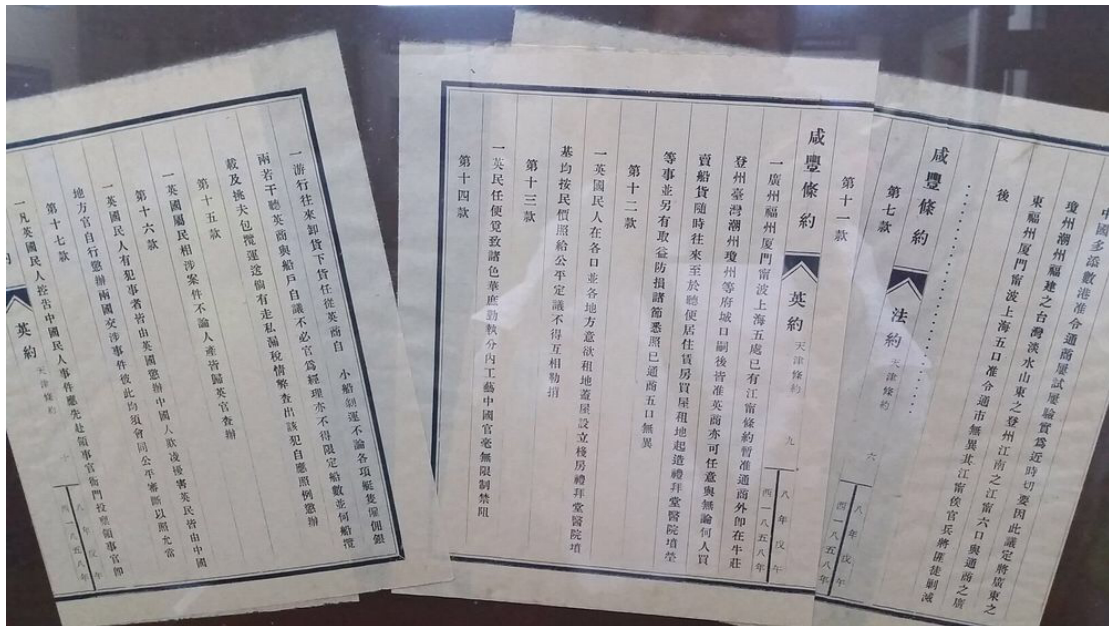 中國多添數港准令通商屢試屢驗實為近時切要因此議定將廣東之
瓊州潮州福建之台灣淡水山東之登州江南之江甯六口與通商之廣
東福州厦門甯波上海五口准令通市無異其江甯俟官兵將匪徒剿滅
後
第七款
咸豐條約 法約 天津條約 六 八年戊午 西一八五八年
第十一款
咸豐條約 英約 天津條約 九 八年戊午 西一八五八年
一廣州福州厦門甯波上海五處已有江甯條約暫准通商外卽在牛莊
登州臺灣潮州瓊州等府城口嗣後皆准英商亦可任意與無論何人買
賣船貨隨時往來至於聽便居住賃房買屋租地起造禮拜堂醫院墳塋
等事並另有取益防損諸節悉照已通商五口無異
第十二款
一英國民人在各口並各地方意欲租地蓋屋設立棧房禮拜堂醫院墳
基均按民價照給公平定議不得互相勒掯
第十三款
一英民任便覓致諸色華庶勷執分內工藝中國官毫無限制禁阻
第十四款
一游行往來卸貨下貨任從英商自 小船剝運不論各項艇隻僱佣銀
兩若干聽英商與船戶自議不必官為經理亦不得限定船數並何船攬
載及挑夫包攬運送倘有走私漏稅情弊查出該犯自應照例懲辦
第十五款
一英國屬民相涉案件不論人產皆歸英官查辦
第十六款
一英國民人有犯事者皆由英國懲辦中國人欺凌擾害英民皆由中國
地方官自行懲辦兩國交涉事件彼此均須會同公平審斷以照允當
第十七款
一凡英國民人控告中國民人事件應先赴領事官衙門投稟領事官卽
約 英約 天津條約 十 八年戊午 西一八五八年